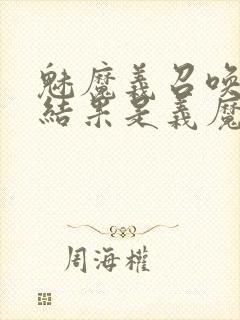 魅魔義召喚
結果是義魔
周海權